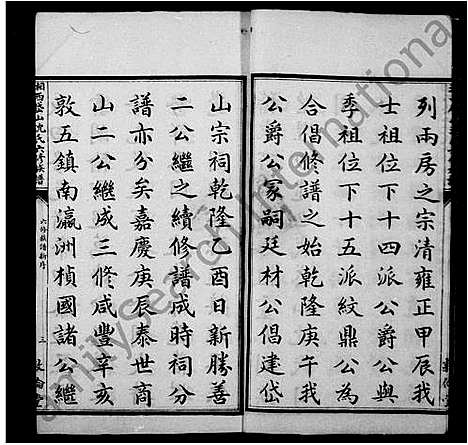 列兩房之宗清雍正甲辰我
士祖位下十四派公爵公與
季祖位下十五派紋鼎公為
合倡修譜之始乾隆庚午我
公爵公冢嗣廷材公倡建岱
山宗祠乾隆乙酉日新勝善
二公繼之續修譜成時祠分
譜亦分矣嘉慶庚辰泰世商
山二公繼成三修咸豐辛亥
敦五鎮南瀛洲楨國諸公繼
湘西 山沈氏六修族譜
六修族譜新序
三
敦倫堂
FamilySearch International